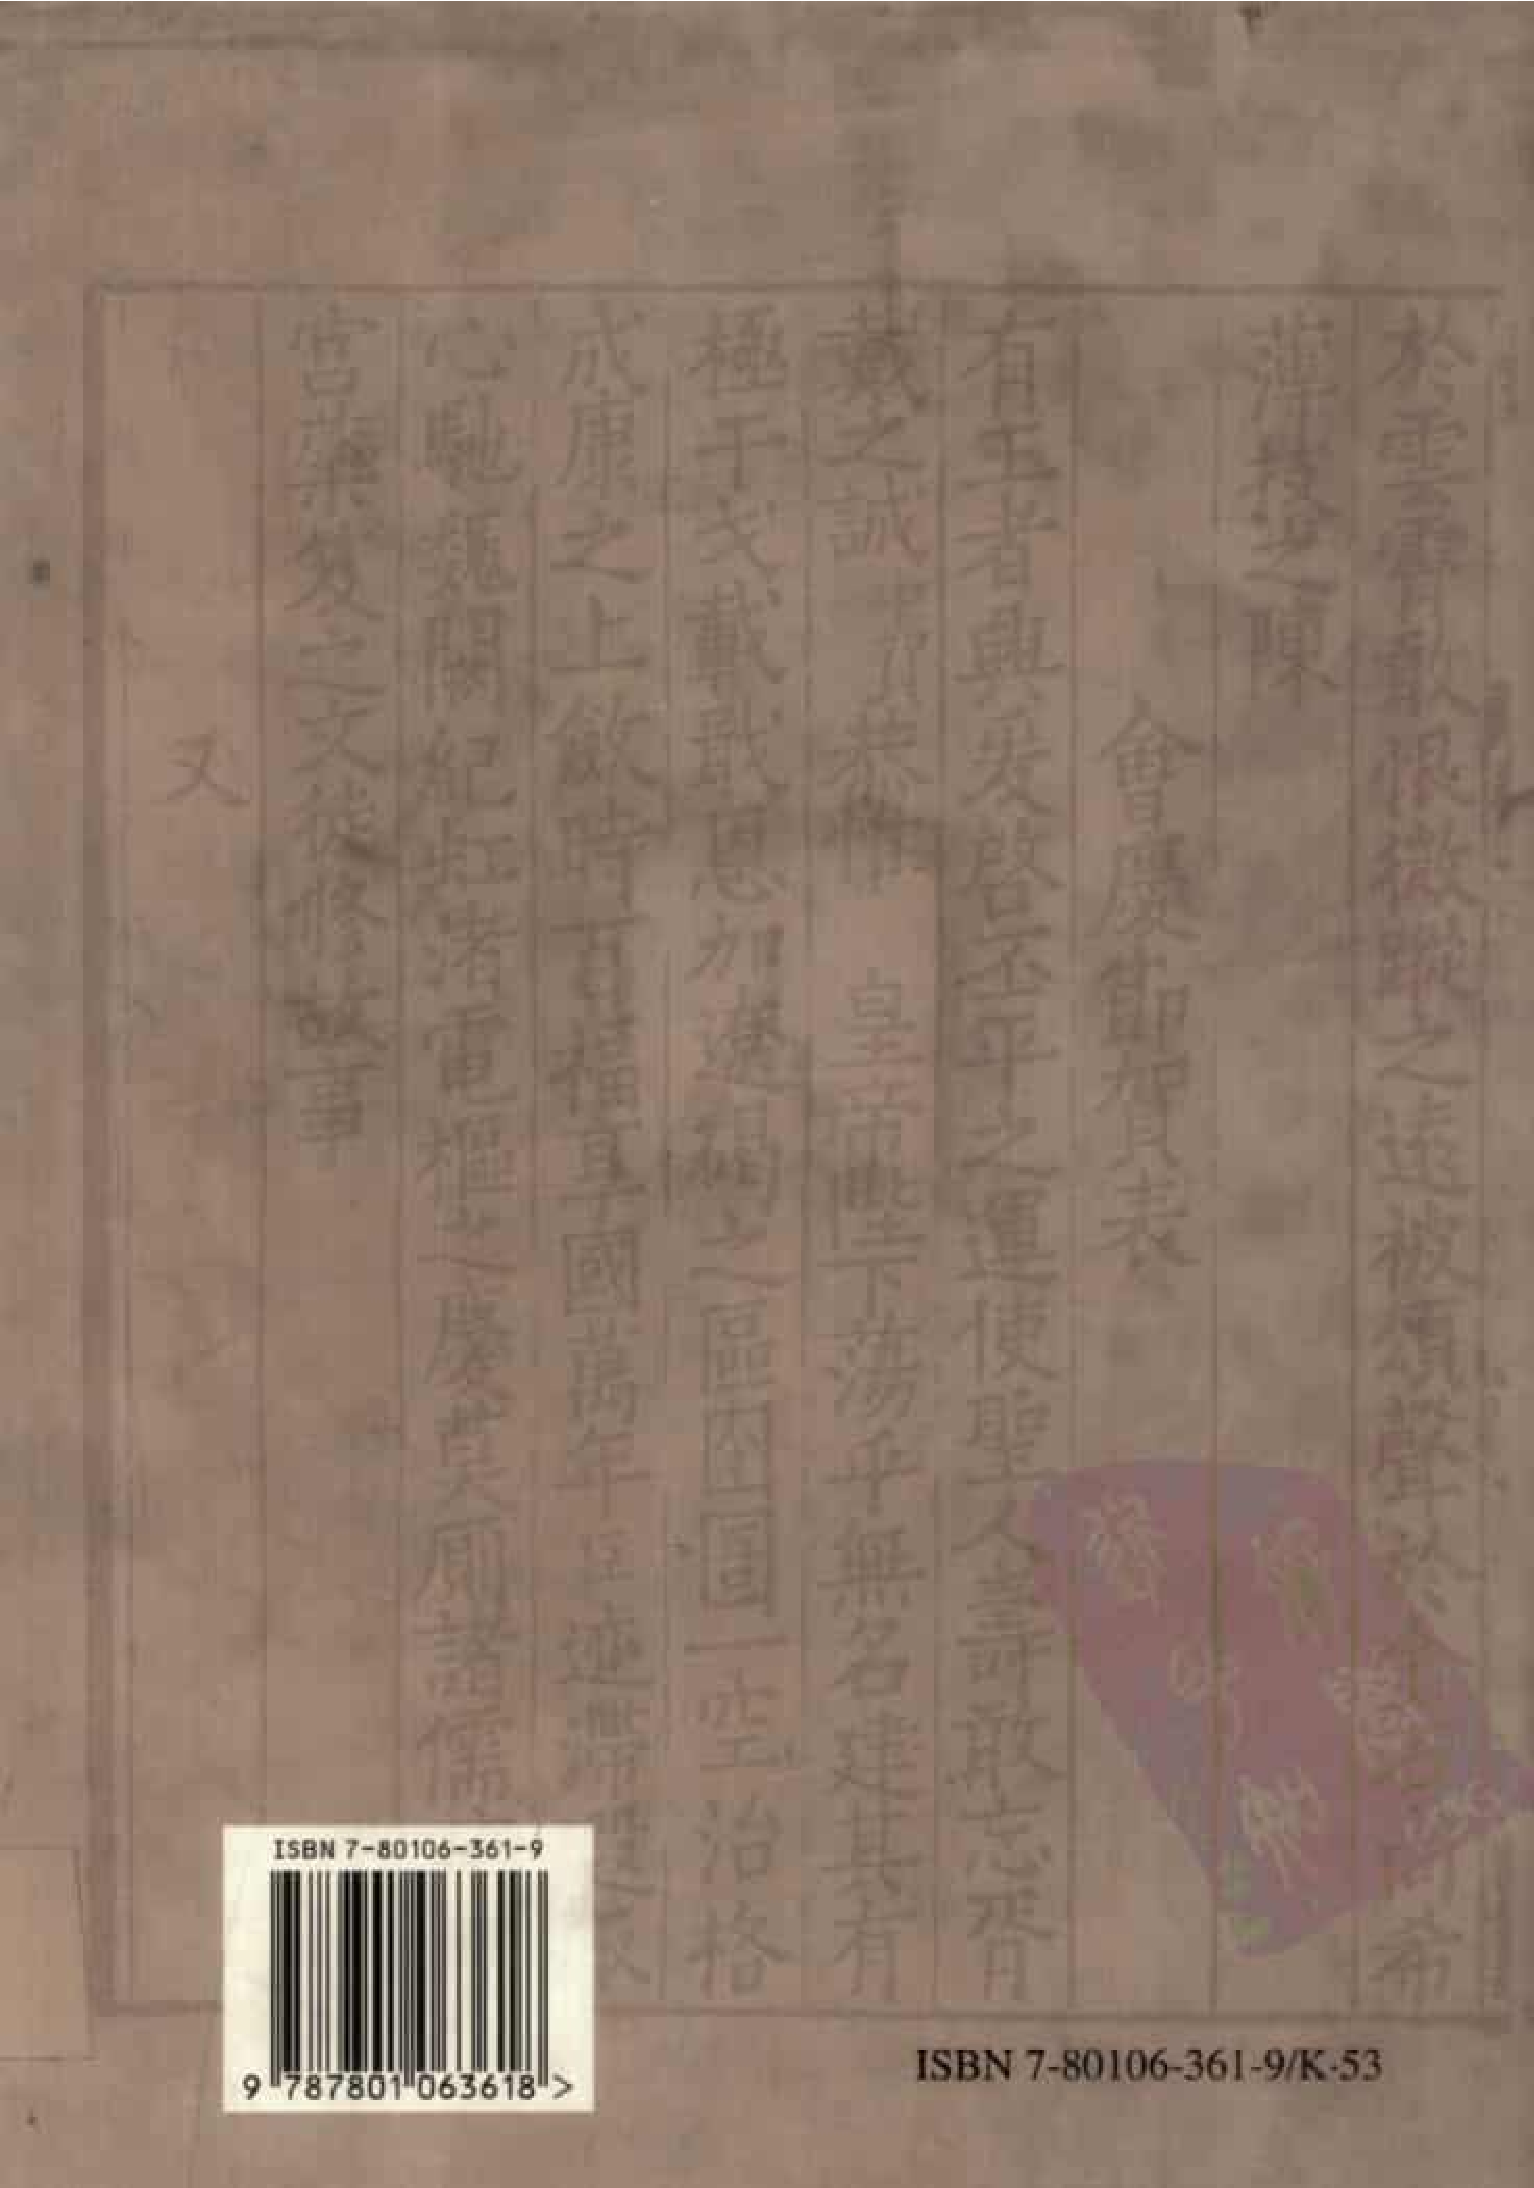 於雲霄歌恨微蹤之遠被頌聲於
希
薄技之陳
會慶節賀表
有王者興爰啓丕平之運使聖人壽敢忘胥
戴之誠 恭惟 皇帝陛下蕩乎無名建其有
極干戈載戢恩加遐之區囹圄一空治格
成康之上斂時百福享國萬年臣迹滯
心馳魏闕紀虹渚電樞之慶莫厠諸儒
宮之文徒修故事
又
ISBN 7-80106-361-9
9 787801 063618 >
ISBN 7-80106-361-9/K·53